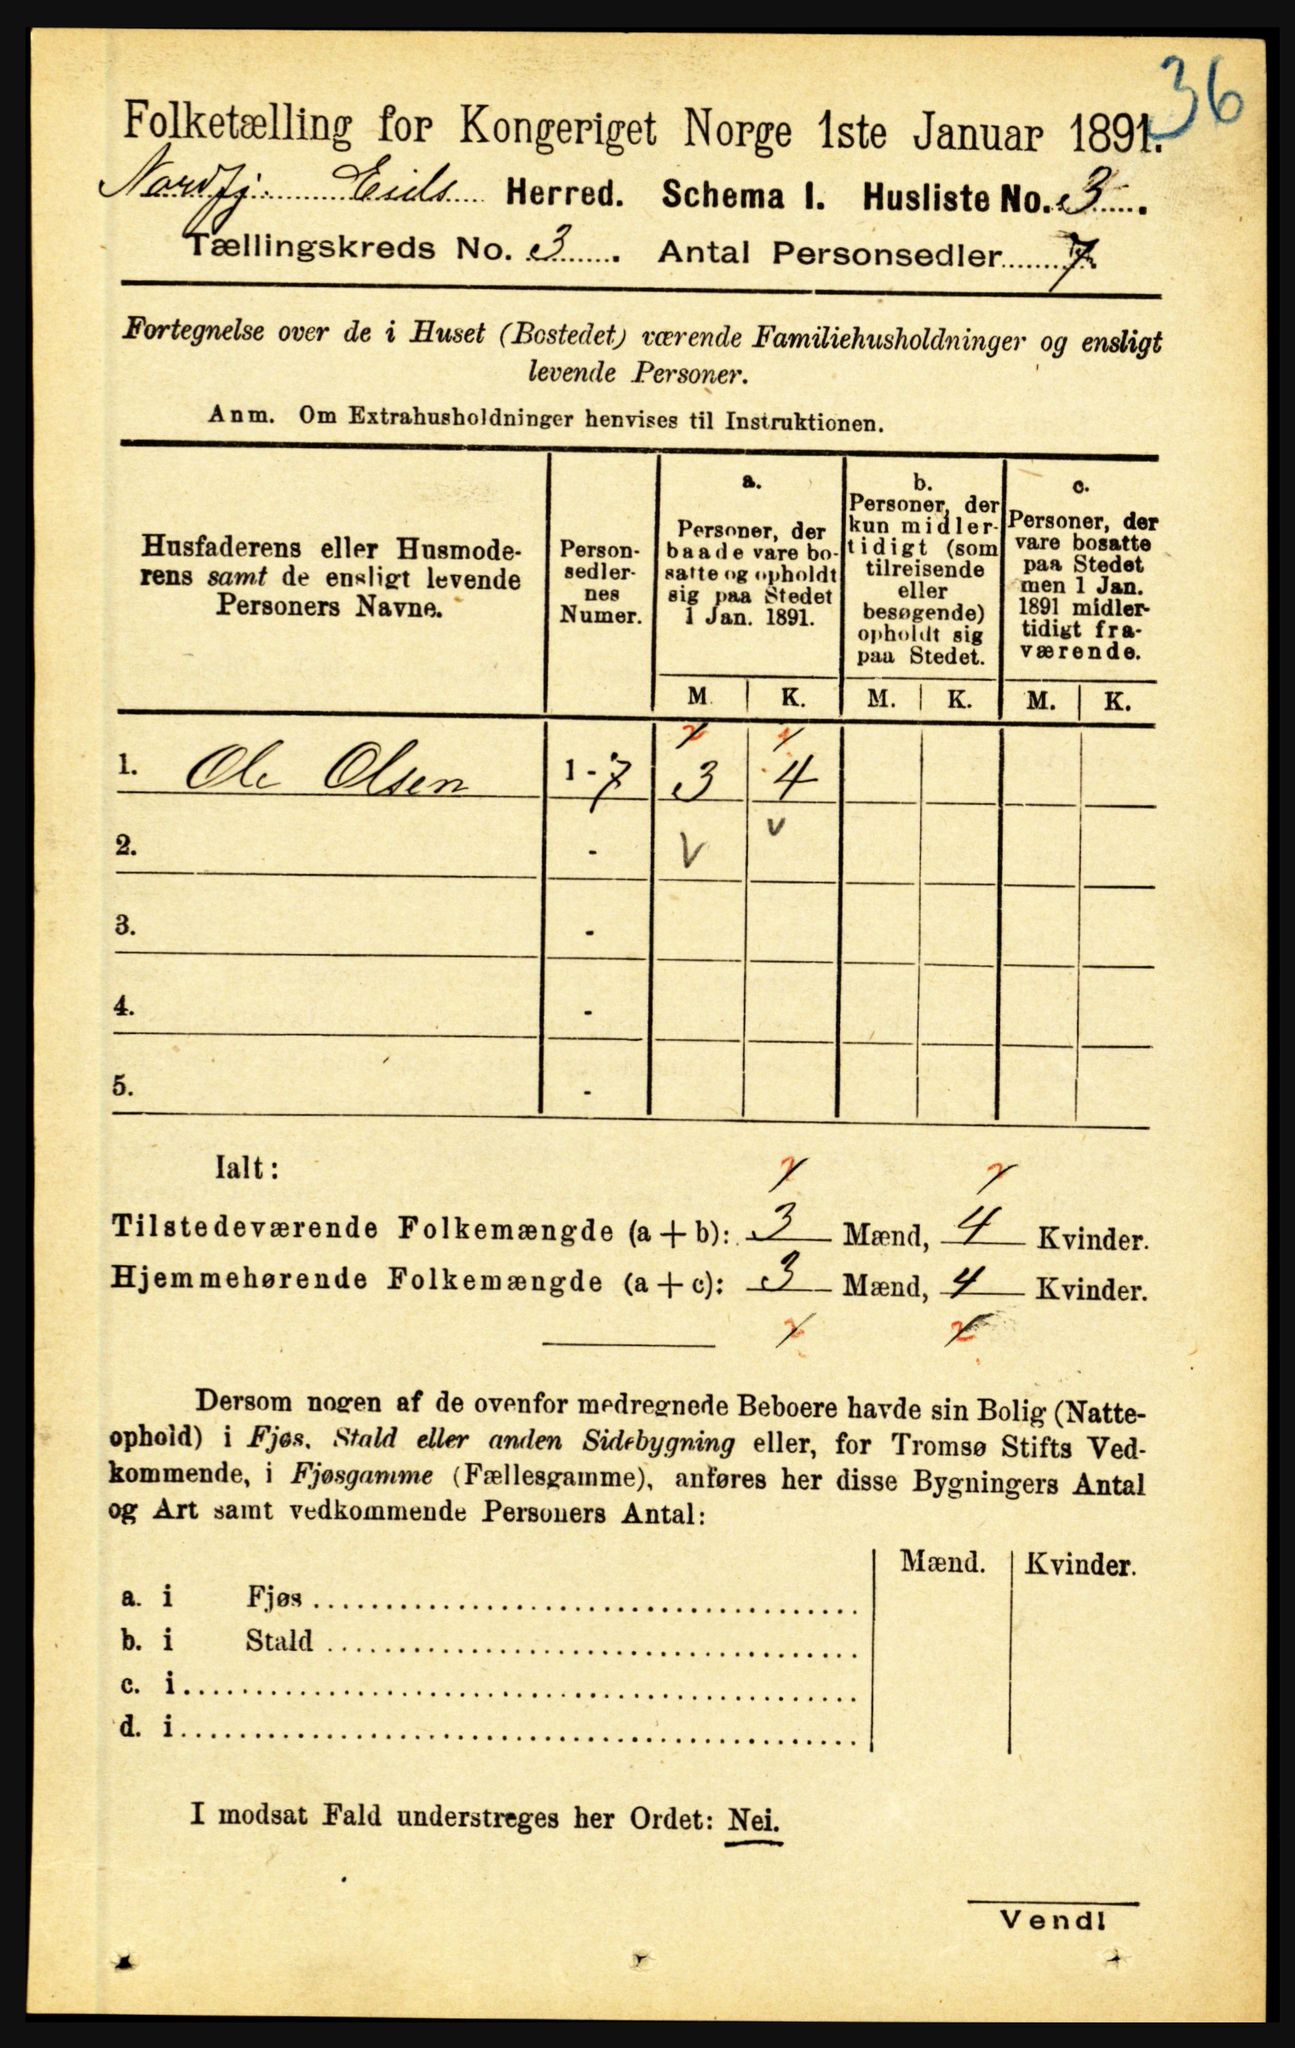 36
Folketælling for Kongeriget Norge 1ste Januar 1891.
Nordfj. Eids Herred. Schema I. Husliste No. 3.
Tællingskreds No. 3. Antal Personsedler 7.
Fortegnelse over de i Huset (Bostedet) værende Familiehusholdninger og ensligt
levende Personer.
Anm. Om Extrahusholdninger henvises til Instruktionen.
Husfaderens eller Husmode-
rens samt de ensligt levende
Personers Navne.
Person-
sedler-
nes
Numer.
a.
Personer, der
baade vare bo-
satte og opholdt
sig paa Stedet
1 Jan. 1891.
b.
Personer, der
kun midler-
tidigt (som
tilreisende
eller
besøgende)
opholdt sig
paa Stedet.
c.
Personer, der
vare bosatte
paa Stedet
men 1 Jan.
1891 midler-
tidigt fra-
værende.
M. K. M. K. M. K.
1. Ole Olsen 1-7 3 4
2. - v v
3. -
4. -
5. -
Ialt:
Tilstedeværende Folkemængde (a + b): 3 Mænd, 4 Kvinder.
Hjemmehørende Folkemængde (a + c): 3 Mænd, 4 Kvinder.
Dersom nogen af de ovenfor medregnede Beboere havde sin Bolig (Natte-
ophold) i Fjøs, Stald eller anden Sidebygning eller, for Tromsø Stifts Ved-
kommende, i Fjøsgamme (Fællesgamme), anføres her disse Bygningers Antal
og Art samt vedkommende Personers Antal:
Mænd. Kvinder.
a. i Fjøs
b. i Stald
c. i
d. i
I modsat Fald understreges her Ordet: Nei.
Vend!